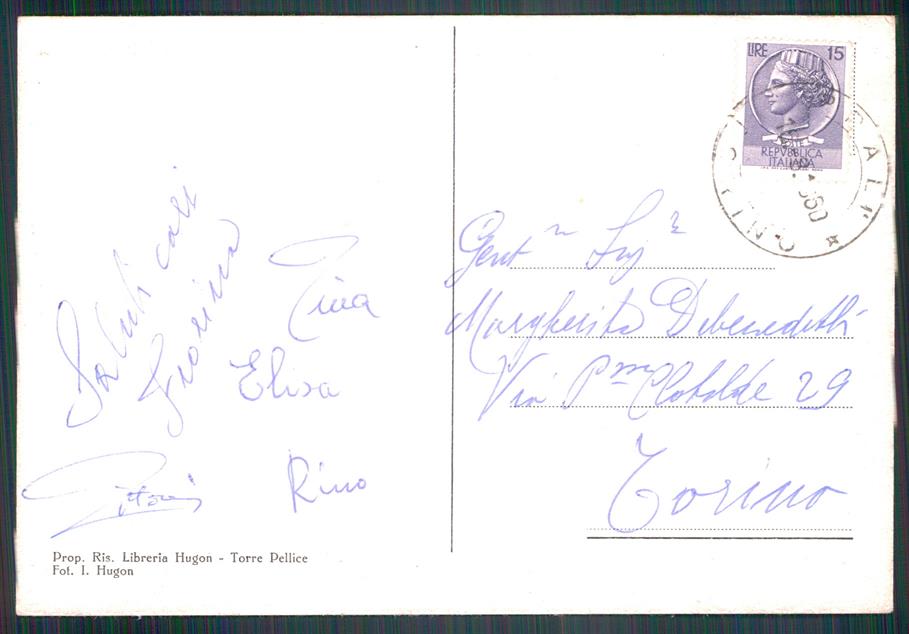 Saluti cari
Giorina
Tina
Elisa
Rino
Prop. Ris. Libreria Hugon - Torre Pellice
Fot. I. Hugon
LIRE 15
POSTE
REPVBBLICA
ITALIANA
Gent.ma Sig.ra
Margherita Debenedetti
Via P.ssa Clotilde 29
Torino